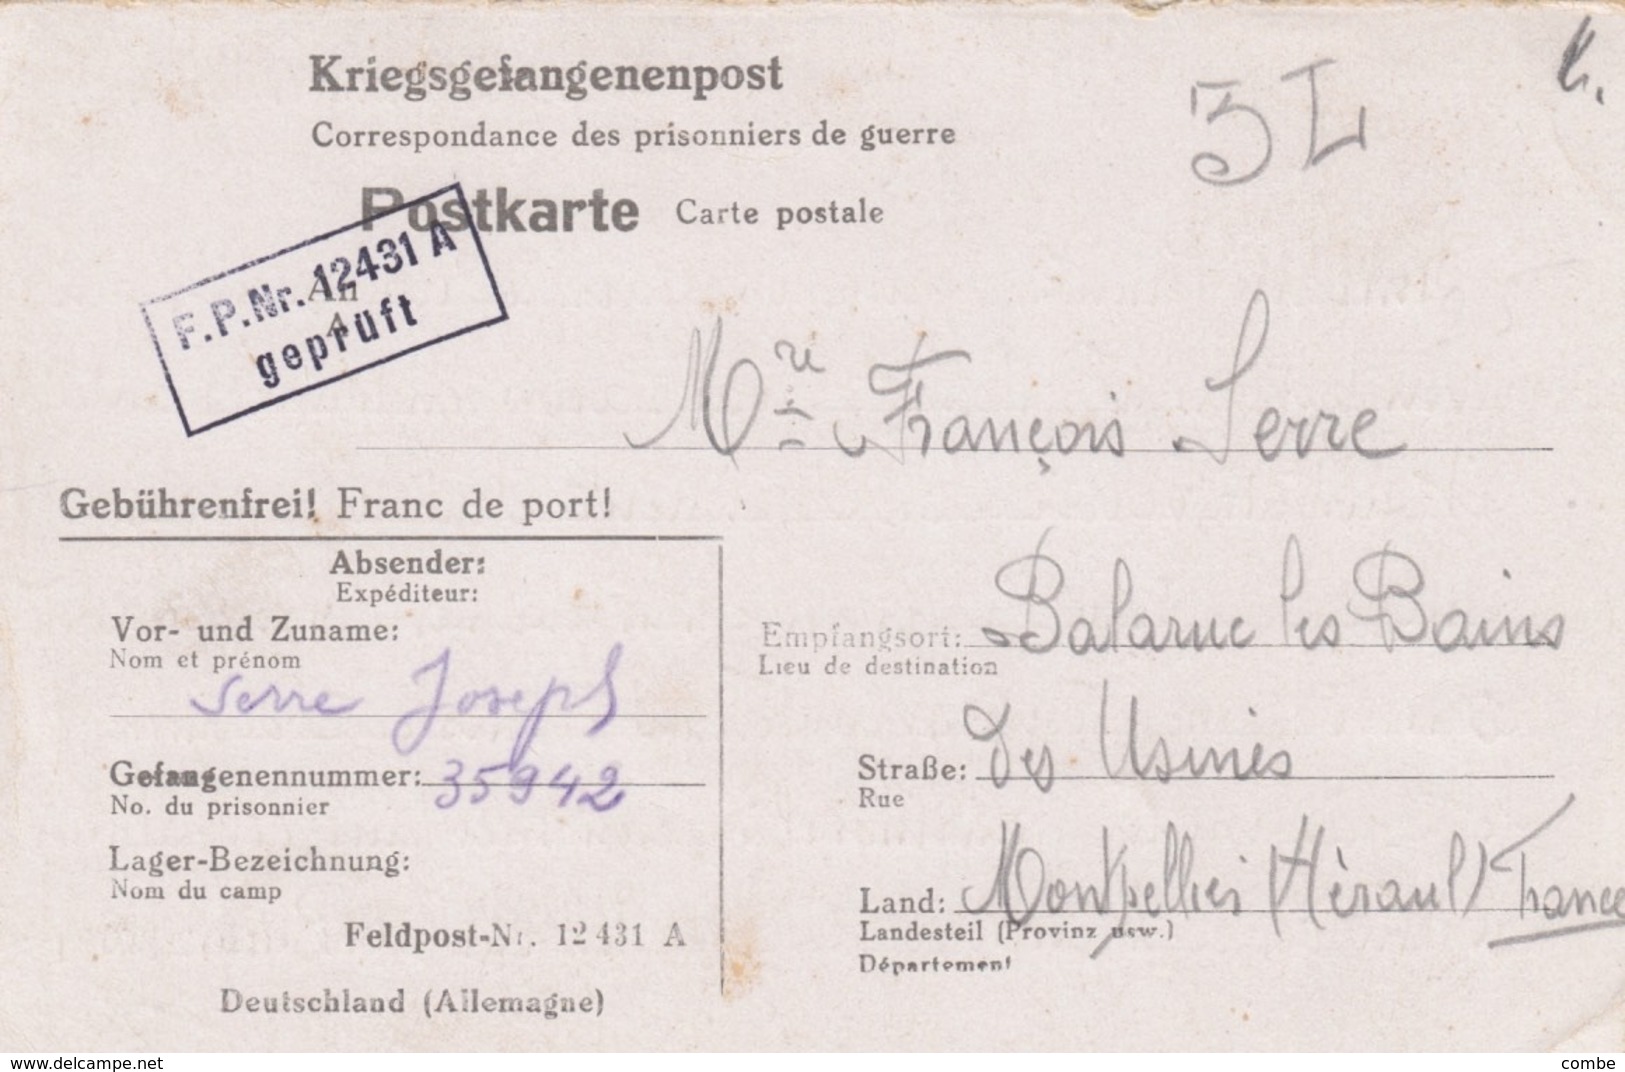 Kriegsgefangenenpost
Correspondance des prisonniers de guerre
Postkarte Carte postale
F.P.Nr. 12431 A
geprüft
An
A
Mre François Serre
Gebührenfrei! Franc de port!
Absender:
Expéditeur:
Vor- und Zuname:
Nom et prénom
Serre Joseph
Gefangenennummer: 35942
No. du prisonnier
Lager-Bezeichnung:
Nom du camp
Feldpost-Nr. 12 431 A
Deutschland (Allemagne)
Empfangsort: Balaruc les Bains
Lieu de destination
Straße: des Usines
Rue
Land: Montpellier (Hérault) France
Landesteil (Provinz usw.)
Département
www.delcampe.net
combe